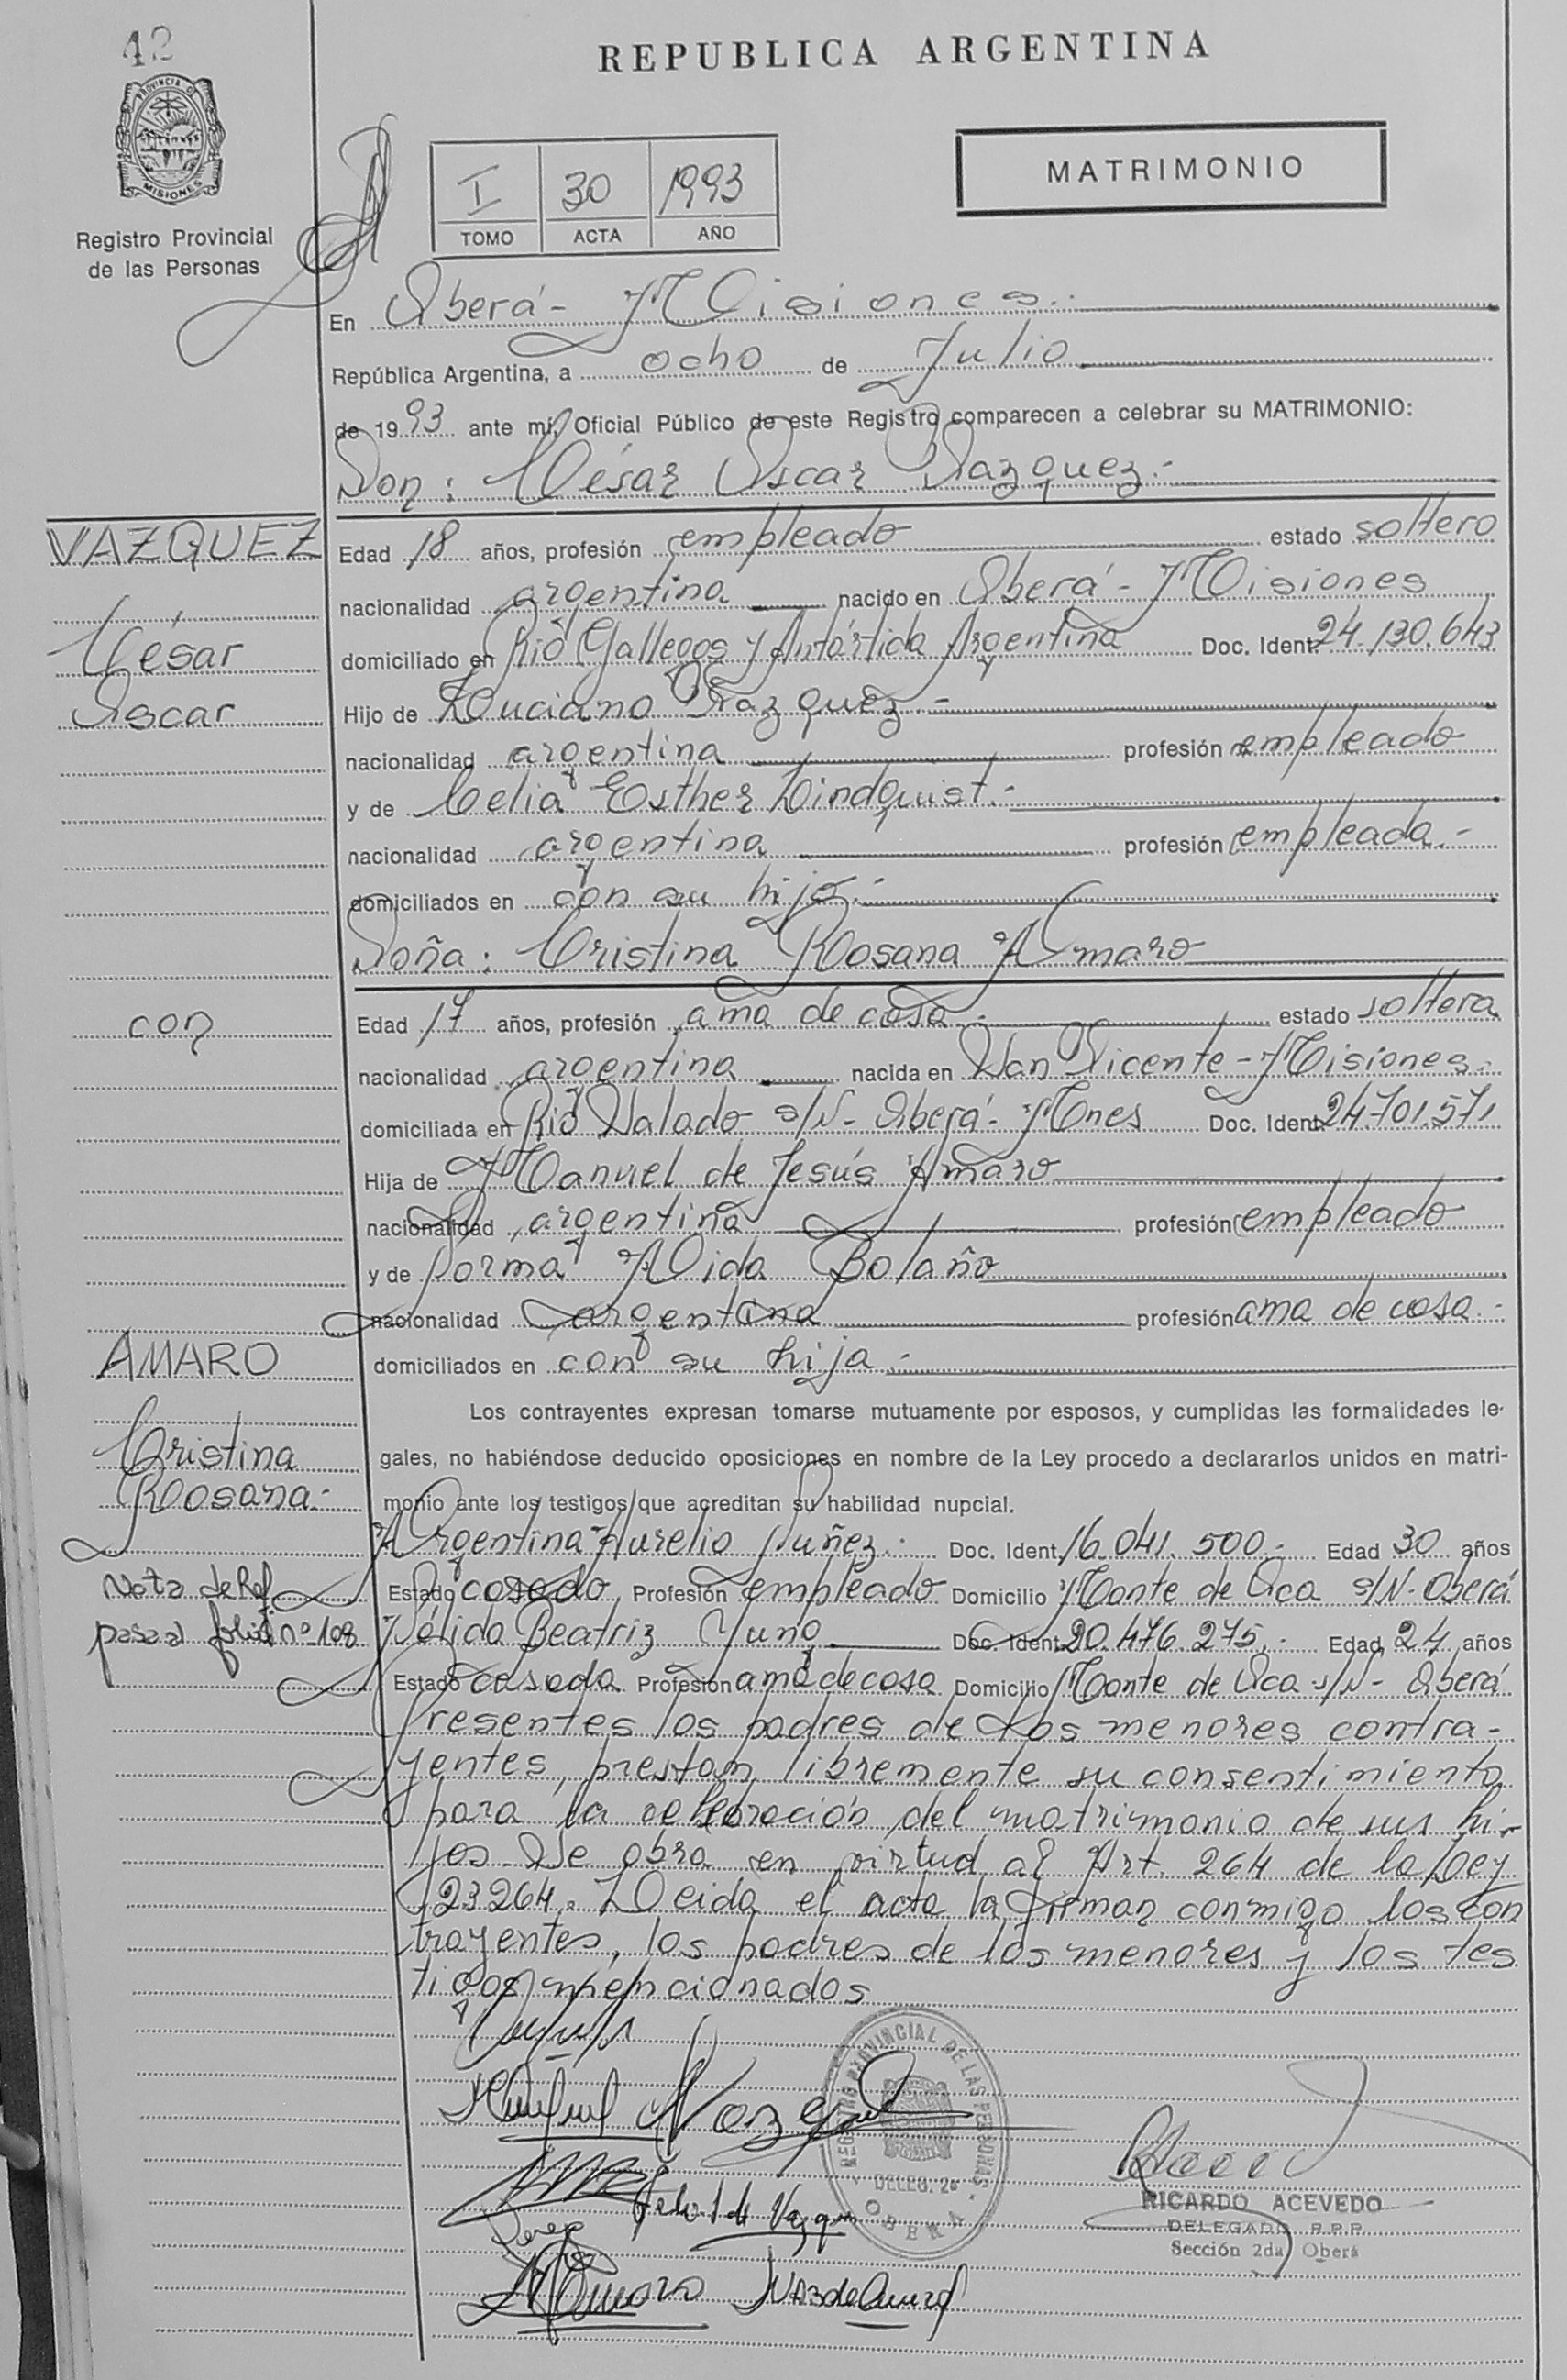 42
REPUBLICA ARGENTINA
PROVINCIA D
MISIONES
Registro Provincial
de las Personas
I 30 1993
TOMO ACTA AÑO
MATRIMONIO
En Oberá - Misiones.-
República Argentina, a ocho de Julio
de 1993 ante mí, Oficial Público de este Registro comparecen a celebrar su MATRIMONIO:
Don: César Oscar Vazquez.-
VAZQUEZ
César
Oscar
Edad 18 años, profesión empleado estado soltero
nacionalidad argentina nacido en Oberá - Misiones
domiciliado en Río Gallegos y Antártida Argentina Doc. Ident. 24.130.643
Hijo de Luciano Vazquez.-
nacionalidad argentina profesión empleado
y de Celia Esther Lindquist.-
nacionalidad argentina profesión empleada.-
domiciliados en con su hijo.-
Doña: Cristina Rosana Amaro
con
Edad 17 años, profesión ama de casa.- estado soltera
nacionalidad argentina nacida en San Vicente - Misiones.-
domiciliada en Río Salado s/N - Oberá - Mnes Doc. Ident. 24.701.571
Hija de Manuel de Jesús Amaro
nacionalidad argentina profesión empleado
y de Norma Alida Bolaño
nacionalidad argentina profesión ama de casa.-
domiciliados en con su hija.-
AMARO
Cristina
Rosana.-
Los contrayentes expresan tomarse mutuamente por esposos, y cumplidas las formalidades le-
gales, no habiéndose deducido oposiciones en nombre de la Ley procedo a declararlos unidos en matri-
monio ante los testigos que acreditan su habilidad nupcial.
Argentina Aurelio Nuñez.- Doc. Ident. 16.041.500.- Edad 30 años
Estado casado Profesión empleado Domicilio Monte de Oca s/N - Oberá
Nélida Beatriz Yung Doc. Ident. 20.476.275.- Edad 24 años
Estado casada Profesión ama de casa Domicilio Monte de Oca s/N - Oberá
Nota de Ref
pasa al folio nº 108
Presentes los padres de los menores contra-
yentes, prestan libremente su consentimiento
para la celebración del matrimonio de sus hi-
jos. Se obra en virtud al Art. 264 de la Ley
23264. Leida el acta la firman conmigo los con
trayentes, los padres de los menores y los tes
tigos mencionados
REGISTRO PROVINCIAL DE LAS PERSONAS
DELEG. 2ª
OBERA
RICARDO ACEVEDO
DELEGADO R.P.P.
Sección 2da Oberá